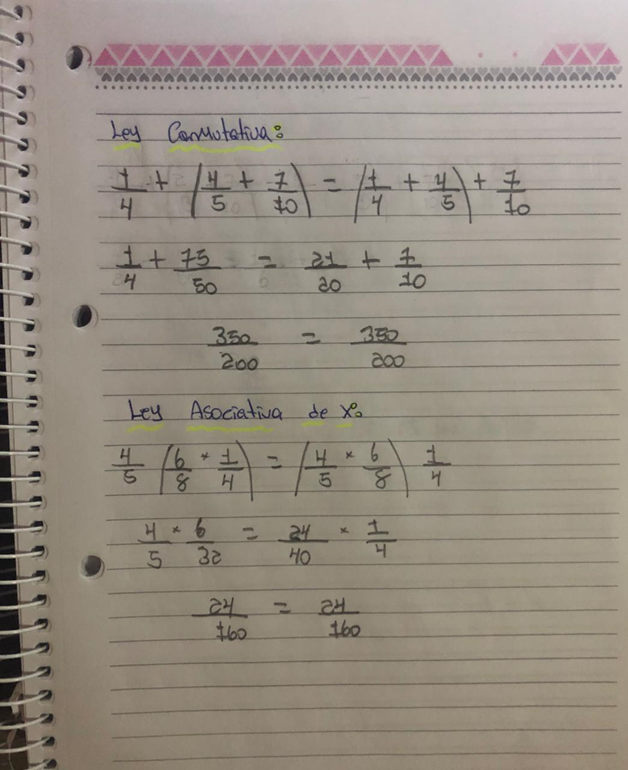 Ley Conmutativa:
1/4 + (4/5 + 7/10) = (1/4 + 4/5) + 7/10
1/4 + 75/50 = 21/20 + 7/10
350/200 = 350/200
Ley Asociativa de X:
4/5 (6/8 × 1/4) = (4/5 × 6/8) 1/4
4/5 × 6/32 = 24/40 × 1/4
24/160 = 24/160